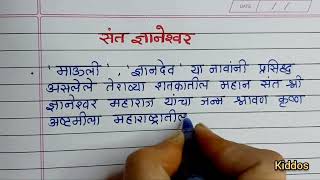 संत ज्ञानेश्वर
. 'माऊली', 'ज्ञानदेव' या नावांनी प्रसिद्ध
असलेले तेराव्या शतकातील महान संत श्री
ज्ञानेश्वर महाराज यांचा जन्म श्रावण कृष्ण
अष्टमीला महाराष्ट्रातील
Kiddos